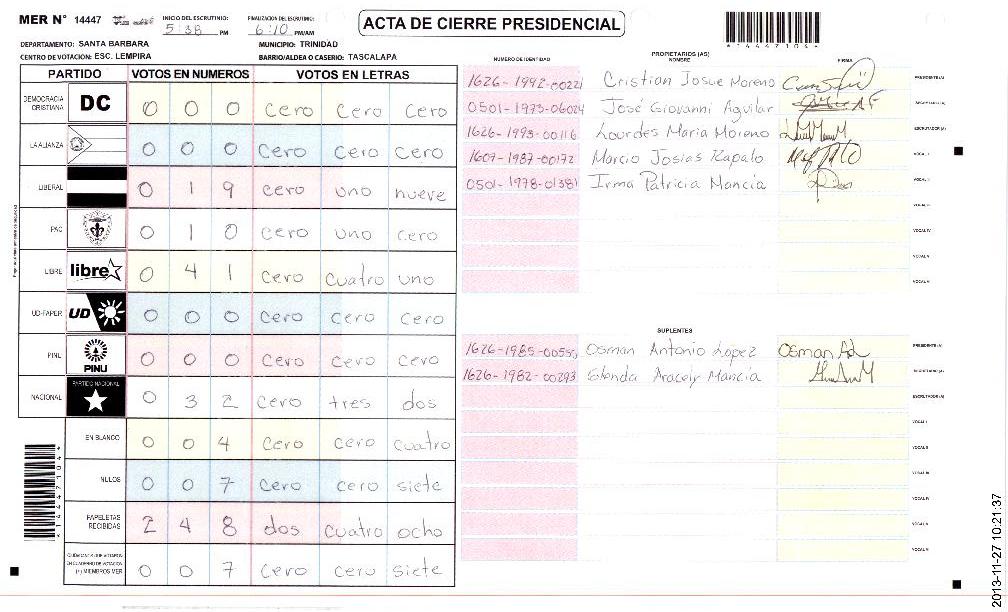 MER N° 14447
INICIO DEL ESCRUTINIO: 5:38 PM
FINALIZACIÓN DEL ESCRUTINIO: 6:10 PM/AM
ACTA DE CIERRE PRESIDENCIAL
*14447104*
DEPARTAMENTO: SANTA BARBARA
MUNICIPIO: TRINIDAD
CENTRO DE VOTACIÓN: ESC. LEMPIRA
BARRIO/ALDEA O CASERIO: TASCALAPA
PARTIDO VOTOS EN NUMEROS VOTOS EN LETRAS
DEMOCRACIA CRISTIANA DC 0 0 0 cero cero cero
LA ALIANZA 0 0 0 cero cero cero
LIBERAL 0 1 9 cero uno nueve
PAC 0 1 0 cero uno cero
LIBRE libre 0 4 1 cero cuatro uno
UD-FAPER UD 0 0 0 cero cero cero
PINU PINU 0 0 0 cero cero cero
NACIONAL PARTIDO NACIONAL 0 3 2 cero tres dos
EN BLANCO 0 0 4 cero cero cuatro
NULOS 0 0 7 cero cero siete
PAPELETAS RECIBIDAS 2 4 8 dos cuatro ocho
(+) MIEMBROS MER 0 0 7 cero cero siete
*14447104*
NUMERO DE IDENTIDAD
PROPIETARIOS (AS)
NOMBRE
FIRMA
1626-1992-00221 Cristian Josue Moreno PRESIDENTE (A)
0501-1973-06024 José Giovanni Aguilar SECRETARIO (A)
1626-1993-00116 Lourdes Maria Moreno ESCRUTADOR (A)
1607-1987-00172 Marcio Josias Rapalo VOCAL I
0501-1978-01381 Irma Patricia Mancia VOCAL II
VOCAL III
VOCAL IV
VOCAL V
VOCAL VI
SUPLENTES
1626-1985-00555 Osman Antonio Lopez PRESIDENTE (A)
1626-1982-00293 Glenda Aracely Mancia SECRETARIO (A)
ESCRUTADOR (A)
VOCAL I
VOCAL II
VOCAL III
VOCAL IV
VOCAL V
VOCAL VI
2013-11-27 10:21:37